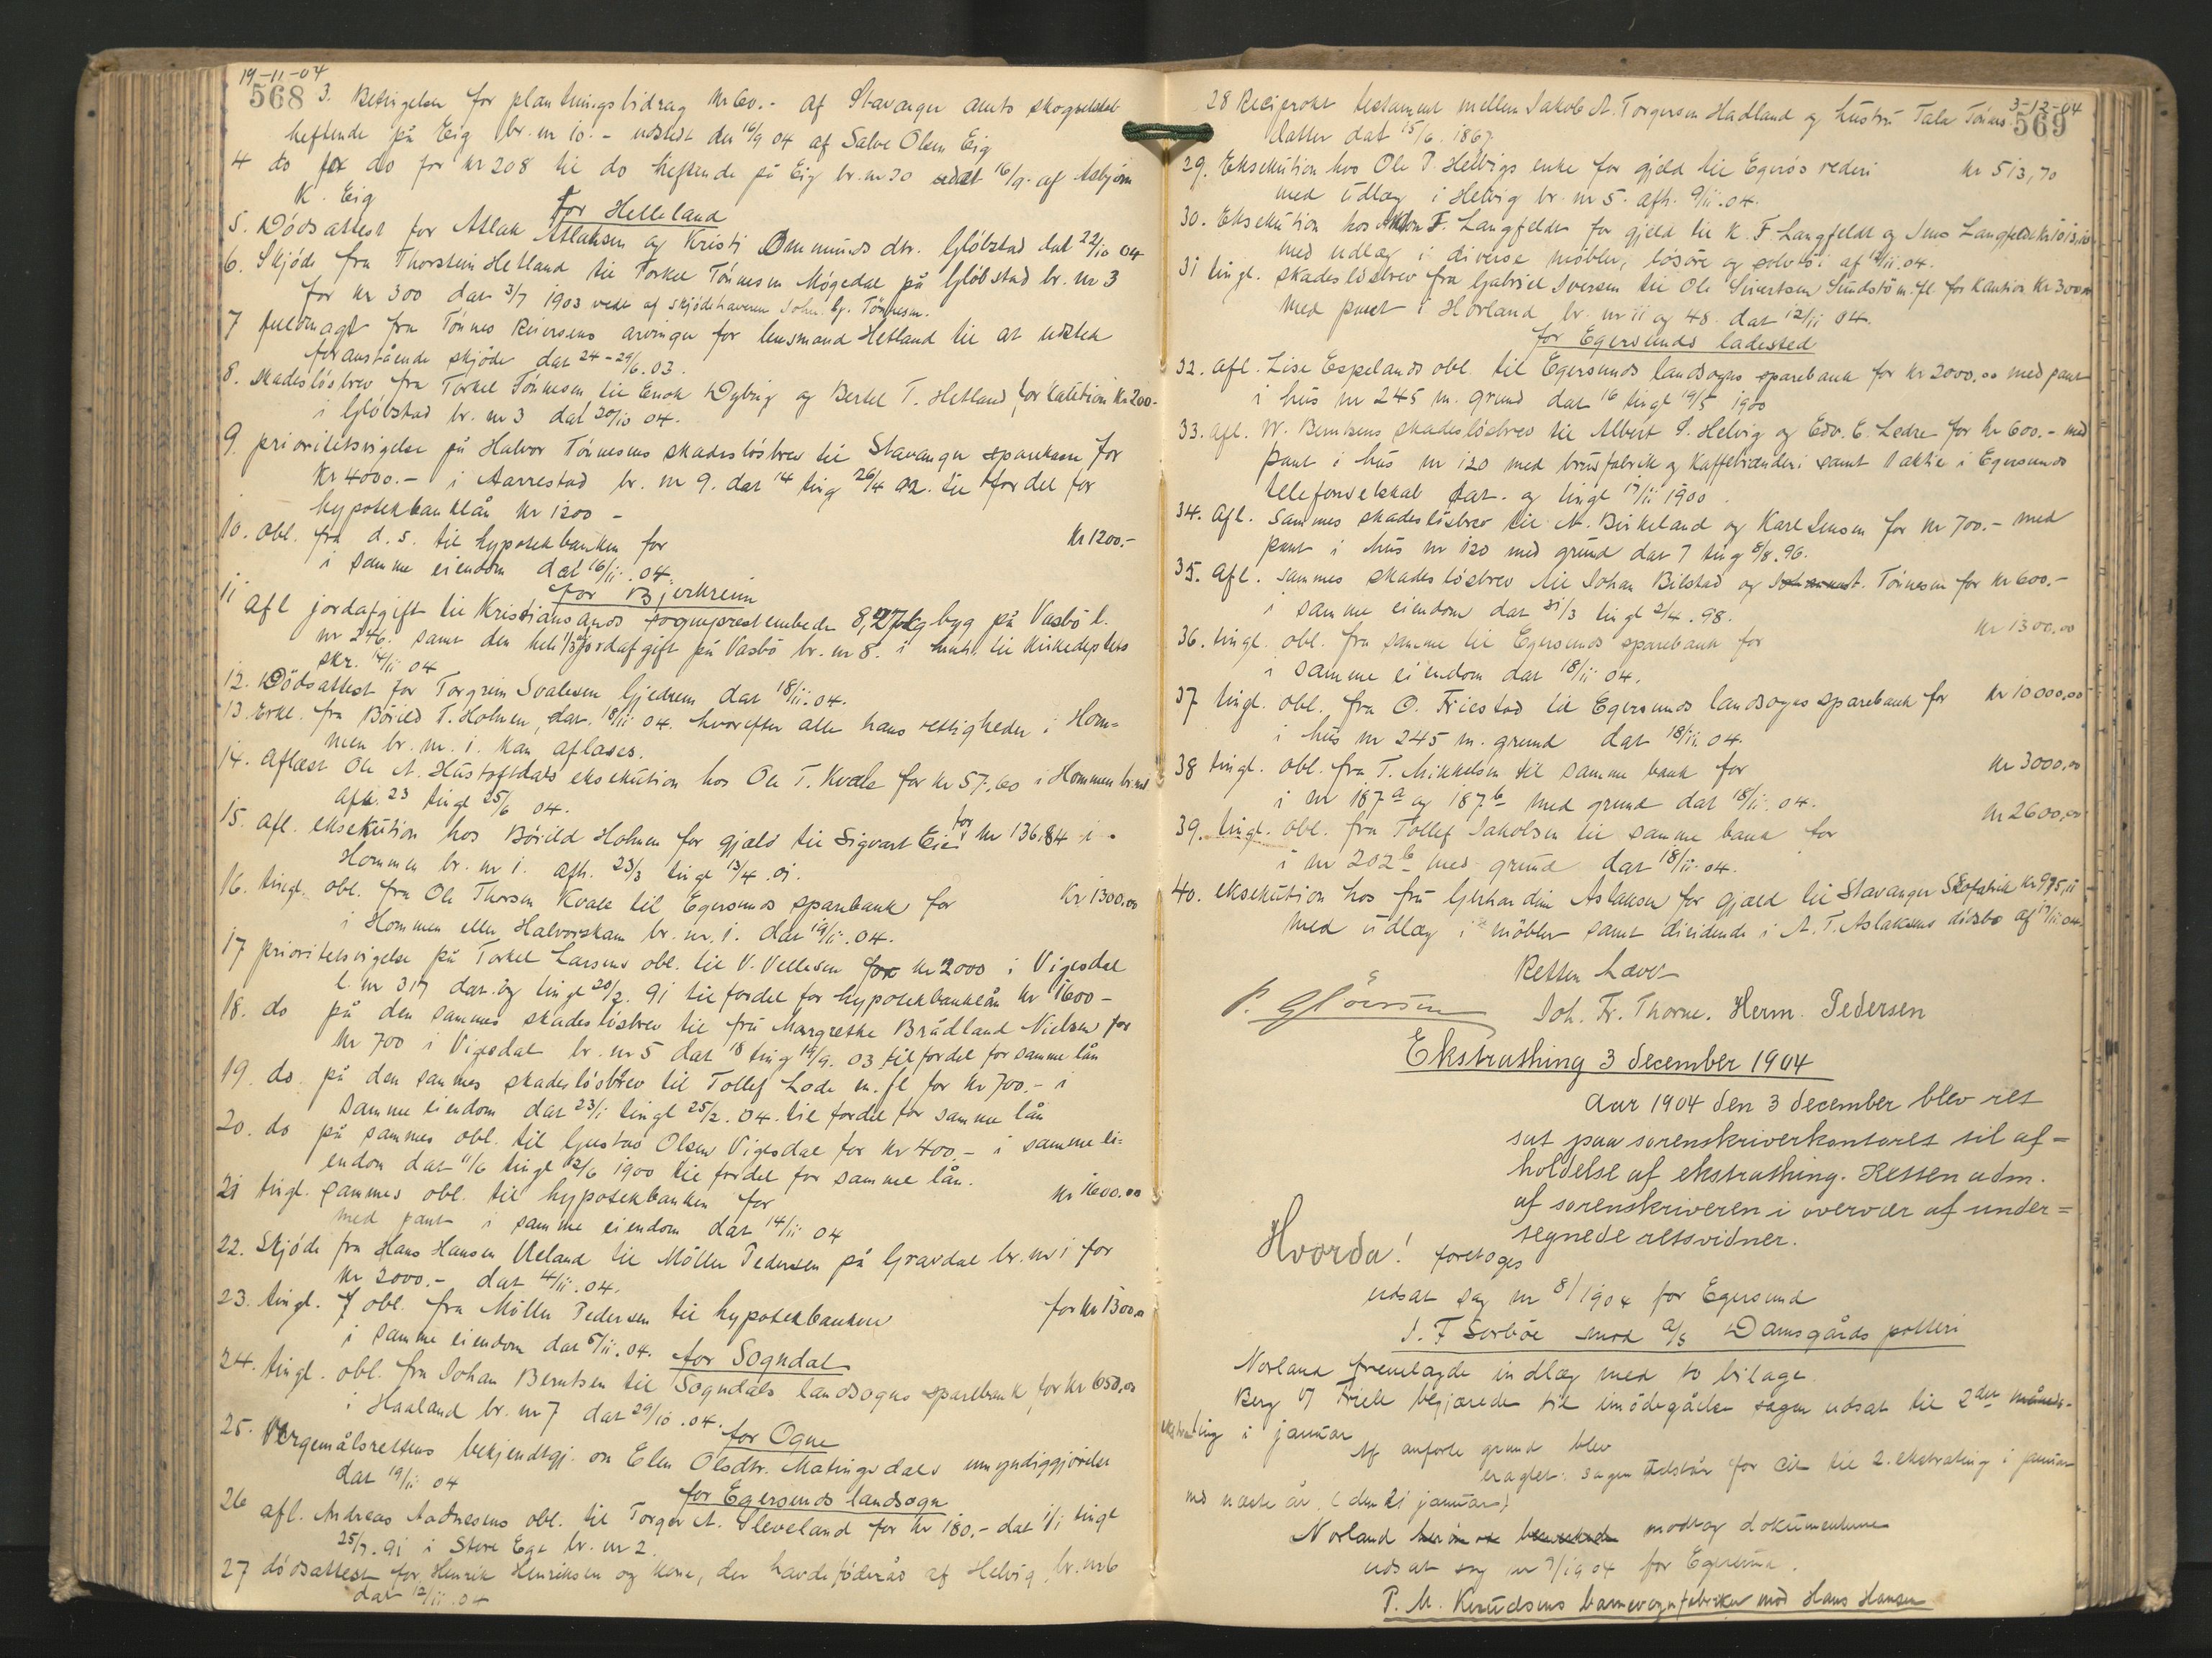 19-11-04
568
3. Betingelse for plantningsbidrag kr 60.- af Stavanger amts skogselskab
heftende på Eig br. nr 10. - udstedt den 16/9 04 af Salve Olsen Eig
4 do for do for kr 208 til do heftende på Eig br. nr 30 udst 16/9. af Asbjørn
K. Eig
for Helleland
5. Dødsattest for Atlak Atlaksen og Kristi Ommunds dtr. Gløbstad dat 22/10 04
6. Skjøde fra Thorstein Hetland til Torkel Tønnesen Møgedal på Gløbstad br. nr 3
for kr 300 dat 3/7 1903 af skjødehaveren Tønnesen.
7 fuldmagt fra Tønnes Reiersens arvinger for lensmand Hetland til at udstede
foranstående skjøde dat 24-29/6. 03.
8. skadesløsbrev fra Torkel Tønnesen til Enok Dybing og Bertel T. Hetland for kaution kr 200.-
i Gløbstad br. nr 3 dat 20/10 04.
9. prioritetsvigelse på Halvor Tønnesens skadesløsbrev til Stavanger sparekasse for
kr 4000.- i Aarrestad br. nr 9. dat 14 ting 26/4 02. til fordel for
hypotekbanklån kr 1200 -
10. obl. fra d. s. til hypotekbanken for kr 1200.-
i samme eiendom dat 16/11. 04.
for Bjerkreim
11 afl jordafgift til Kristiansands sogneprestembede 8,27 kg byg på Vasbø l.
nr 246. samt den hele jordafgift på Vasbø br. nr 8. i henh. til kirkedeptets
skr. 14/11 04
12. Dødsattest for Torgrim Svalesen Gjedrem dat 18/11. 04.
13 erkl. fra Børild T. Holmen, dat. 18/11 04. hvorefter alle hans rettigheder i Hom-
men br. nr. 1. kan aflæses.
14. aflæst Ole A. Hustoftdals eksekution hos Ole T. Kvale for kr 57.60 i Hommen br. nr 1
afh. 23 tingl 25/6 04.
15. afl. eksekution hos Børild Holmen for gjæld til Sigvart Eie for kr 136.84 i -
Hommen br. nr 1. afh. 23/3 tingl 13/4 .01.
16. tingl. obl. fra Ole Thorsen Kvale til Egersunds sparebank for kr 1300.00
i Hommen eller Halvorskam br. nr. 1. dat 19/11. 04.
17 prioritetsvigelse på Torkel Larsens obl. til V. Vellesen for kr 2000 i Vigesdal
l. nr 317 dat. og tingl 20/2. 91 til fordel for hypotekbanklån kr 1600 -
18. do på den sammes skadesløsbrev til fru Margrethe Brådland Nielsen for
kr 700 i Vigesdal br. nr 5 dat 18 ting 19/9. 03 til fordel for samme lån
19. do. på den sammes skadesløsbrev til Tollef Lode m. fl for kr 700.- i
samme eiendom dat 23/1 tingl 25/2. 04. til fordel for samme lån
20. do på sammes obl. til Gustav Olsen Vigesdal for kr 400.- i samme ei=
endom dat 11/6 tingl 12/6 1900 til fordel for samme lån.
21 tingl. sammes obl. til hypotekbanken for kr 1600.00
med pant i samme eiendom dat 14/11 04
22. Skjøde fra Hans Hansen Ueland til Møller Pedersen på Gravdal br. nr 1 for
kr 2000.- dat 4/11. 04.
23. tingl. obl. fra Møller Pedersen til hypotekbanken for kr 1300.00
i samme eiendom dat 5/11. 04.
for Sogndal
24. tingl. obl. fra Johan Berntsen til Sogndals landsogns sparebank for kr 650,00
i Haaland br. nr 7 dat 29/10 .04.
for Ogne
25. Vergemålsrettens bekjendtgj. om Elen Olsdtr. Matingsdals umyndiggjørelse
dat 19/11 04
for Egersunds landsogn
26 afl. Andreas Aadnesens obl. til Torger A. Sleveland for kr 180.- dat 1/1 tingl
25/7. 91 i Store Ege br. nr 2.
27 dødsattest for Henrik Henriksen og kone, der havde føderåd af Helvig br. nr 6
dat 12/11. 04
3-12-04
569
28 Reciprokt testament mellem Jakob A. Torgersen Hadland og hustru Tala Tønnes
datter dat 15/6. 1867.
29. Eksekution hos Ole P. Helvigs enke for gjeld til Egerøs rederi kr 513,70
med udlæg i Helvig br. nr 5. afh. 9/11. 04.
30. Eksekution hos F. Langfeldt for gjeld til K. F Langfeldt og Jens Langfeldt
med udlæg i diverse møbler, løsøre og sølvtøi af 12/11. 04.
31 tingl. skadesløsbrev fra Gabriel Iversen til Ole Sivertsen Sundstø m. fl. for kaution kr 3000
med pant i Hovland br. nr 11 og 48. dat 12/11 04.
for Egersunds ladested
32. afl. Lise Espelands obl. til Egersunds landsogns sparebank for kr 2000.00 med pant
i hus nr 245 m. grund dat 16 tingl 19/5 1900
33. afl. W. Berntsens skadesløsbrev til Albert S. Helvig og Edv. E. Ledre for kr 600.- med
pant i hus nr 120 med brusfabrik og kaffebrænderi samt 1 aktie i Egersunds
telefonselskab dat. og tingl 17/11 1900.
34. afl. sammes skadesløsbrev til A. Birkeland og Karl Jensen for kr 700.- med
pant i hus nr 120 med grund dat 7 ting 8/8. 96.
35. afl. sammes skadesløsbrev til Johan Bilstad og T. Tønnesen for kr 600.-
i samme eiendom dat 31/3 tingl 2/4. 98.
36. tingl. obl. fra samme til Egersunds sparebank for kr 1300,00
i samme eiendom dat 18/11 04.
37 tingl. obl. fra O. Friestad til Egersunds landsogns sparebank for kr 10000,00
i hus nr 245 m. grund dat 18/11. 04.
38 tingl. obl. fra T. Mikkelsen til samme bank for kr 3000,00
i nr 187a og 187b med grund dat 18/11. 04.
39. tingl. obl. fra Tollef Jakobsen til samme bank for kr 2600,00
i nr 202b med grund dat 18/11. 04.
40. eksekution hos fru Aslaksen for gjæld til Stavanger Skofabrik kr 975,11
med udlæg i møbler samt dividende i A. T. Aslaksens dødsbo af 17/11 04.
Retten hævet
Joh. Fr. Thorne. Herm. Pedersen
Ekstrathing 3 december 1904
Aar 1904 den 3 december blev ret
sat paa sorenskriverkontoret til af=
holdelse af ekstrathing. Retten adm.
af sorenskriveren i overvær af under=
tegnede retsvidner.
Hvorda! foretoges
udsat sag nr 8/1904 for Egersund
J. F Sørbøe mod a/s Damsgårds potteri
Norland fremlagde indlæg med to bilage.
Berg og Friele begjærede til imødegåelse sagen udsat til 2den måneds-
ekstrating i januar
Af anførte grund blev
eragtet: sagen udstår for cit til 2. ekstrating i januar
md næste år. (den 21 januar)
Norland modtog dokumenterne
udsat sag nr 9/1904 for Egersund.
P. M. Knudsens barnevognfabriker mod Hans Hansen